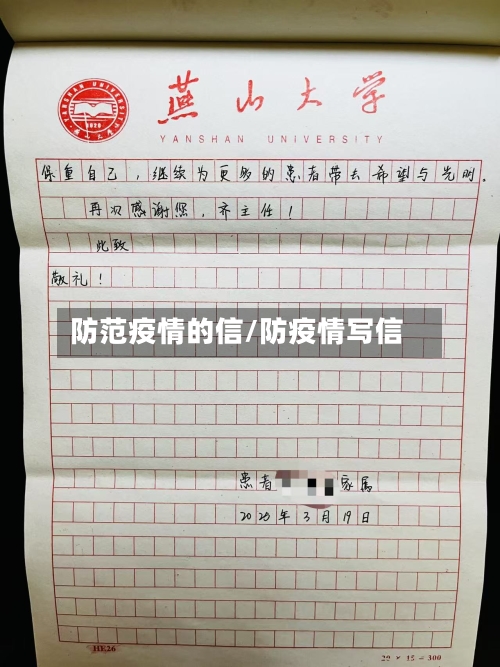 燕山大学
YANSHAN UNIVERSITY
保重自己，继续为更多的患者带去希望与光明.
再次感谢您，齐主任！
此致
敬礼！
防范疫情的信/防疫情写信
患者
家属
2025年3月19日
HE26
20 × 15 = 300